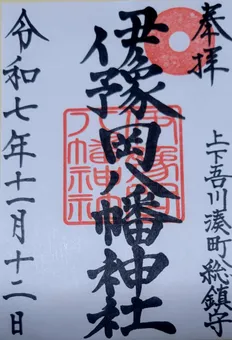 奉拝
上下吾川湊町総鎮守
伊豫岡八幡神社
令和七年十一月十二日